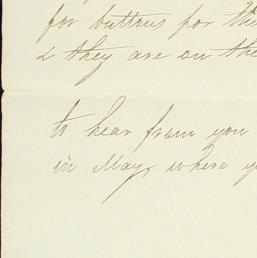 for buttons for the
& they are on the
to hear from you
in May, where y